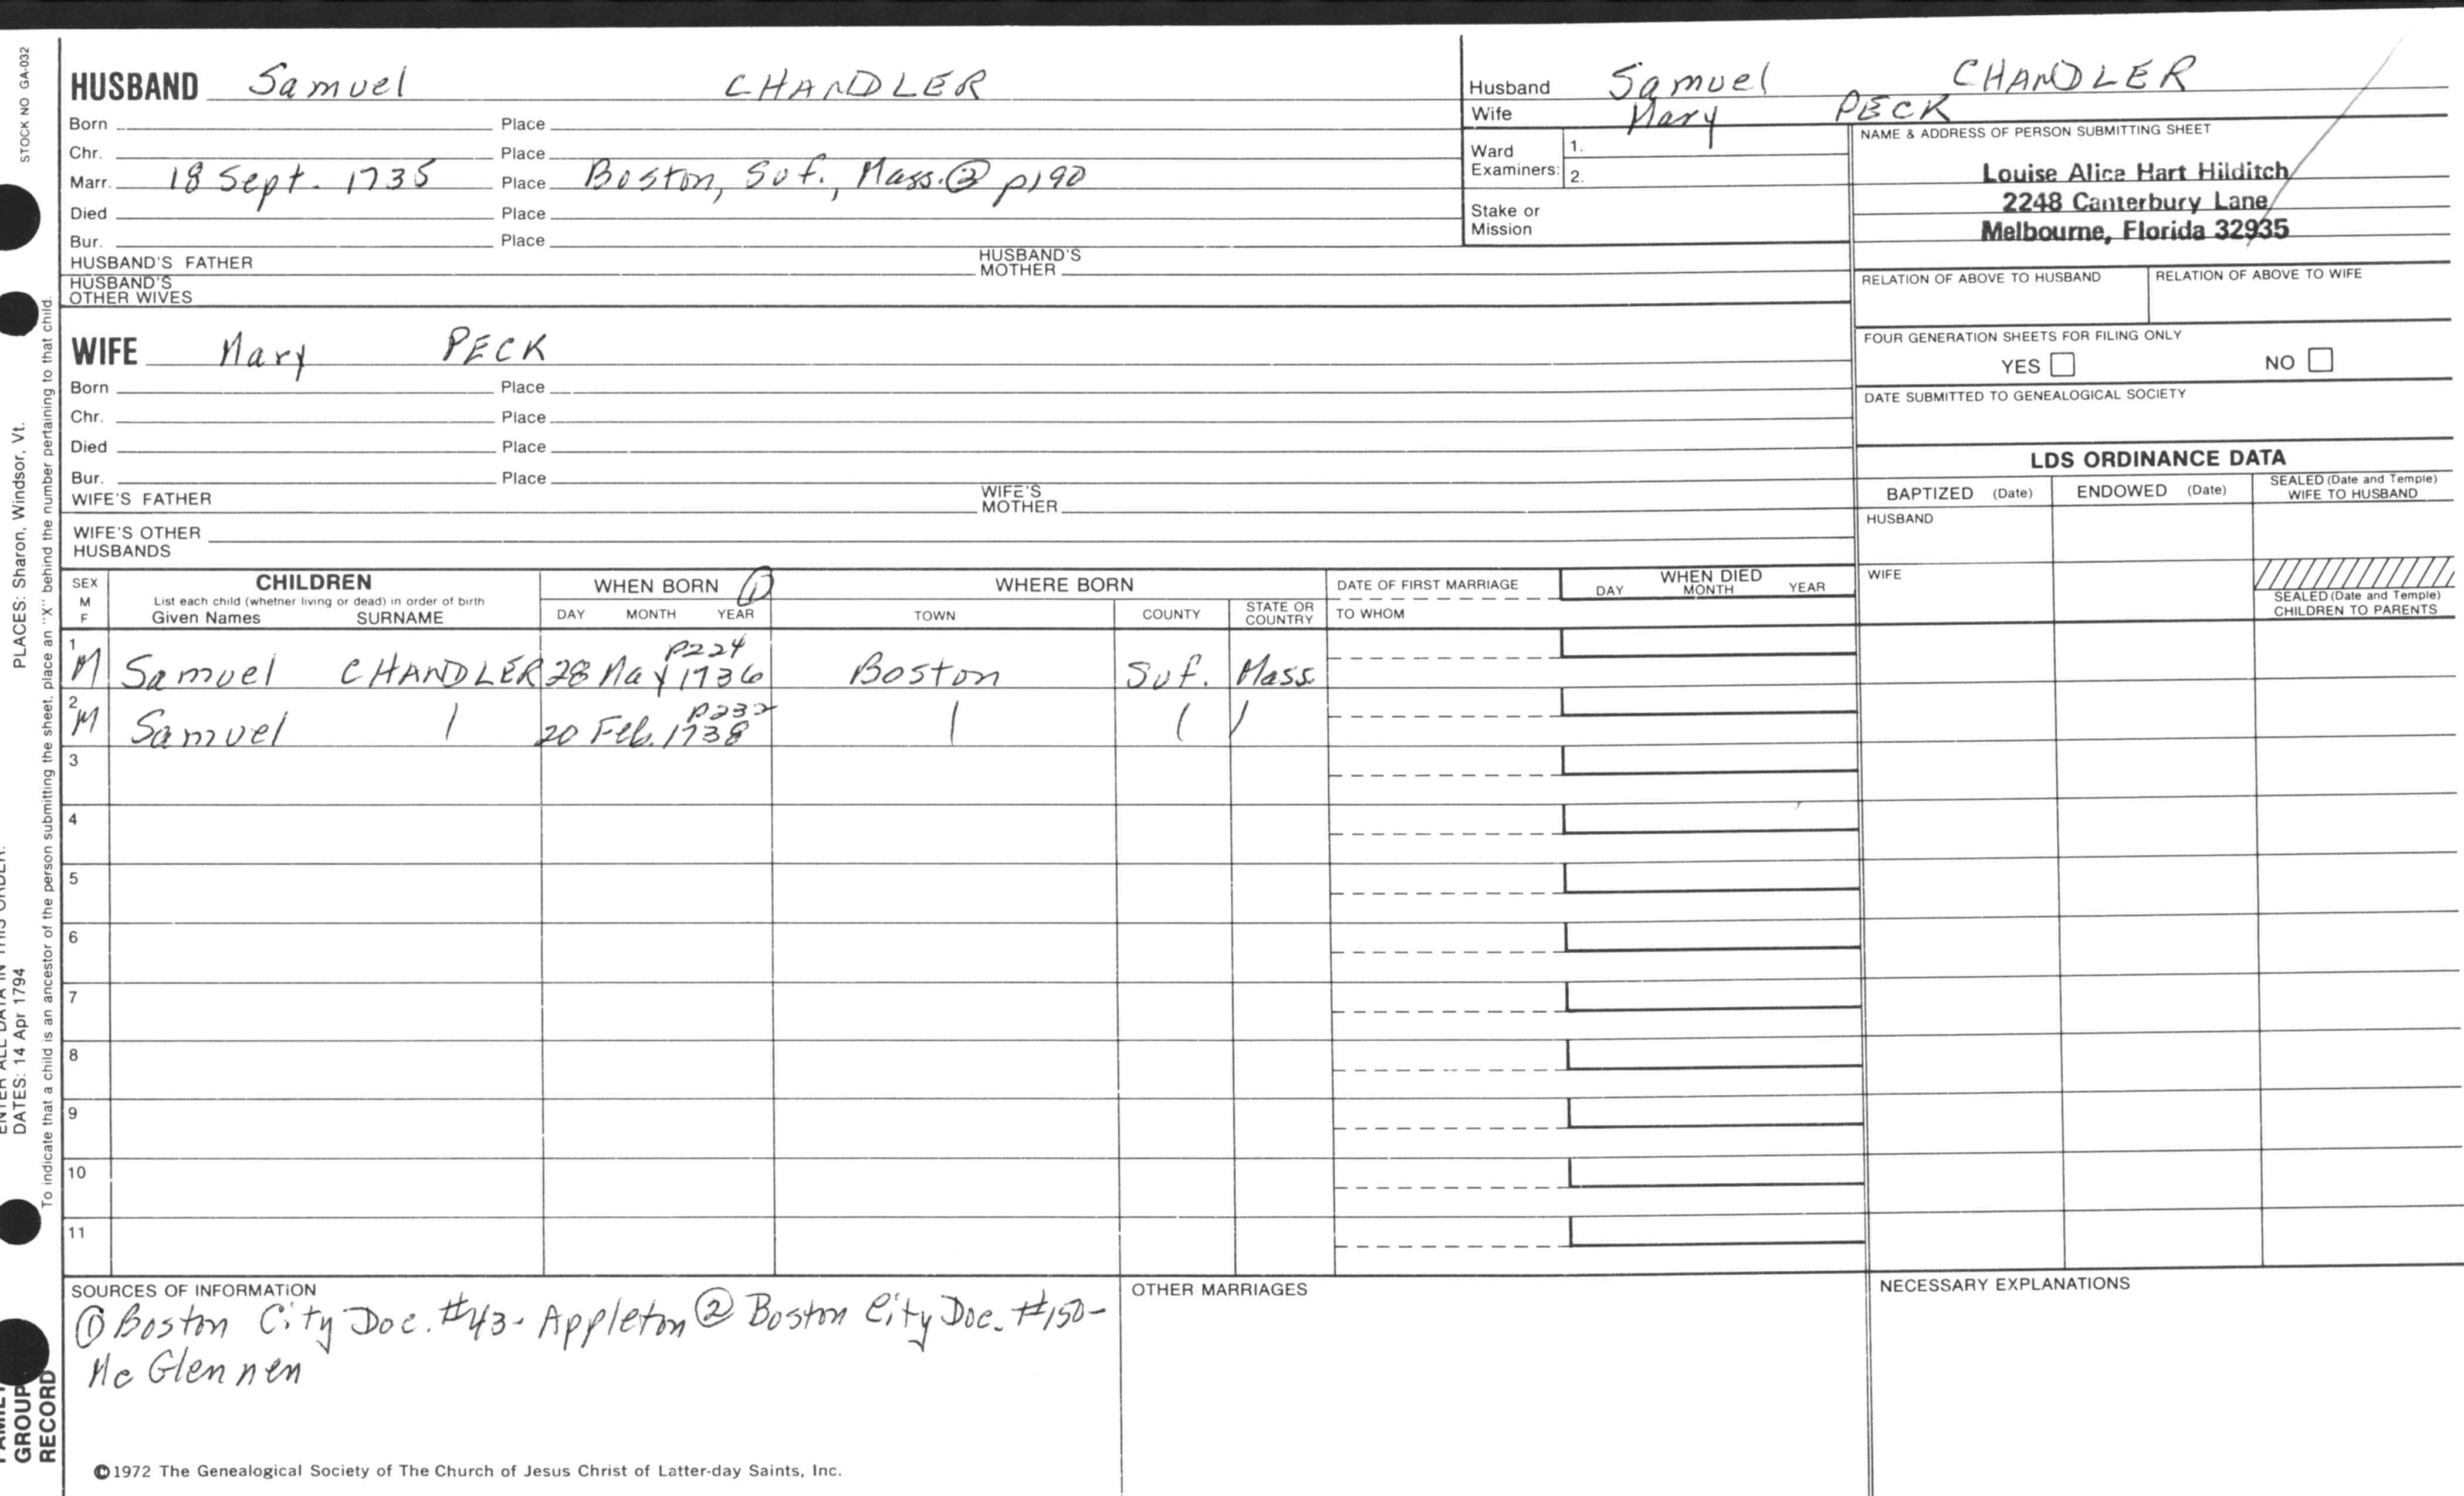 STOCK NO GA-032
HUSBAND Samuel CHANDLER
Born Place
Chr. Place
Marr. 18 Sept. 1735 Place Boston, Suf., Mass. ② p190
Died Place
Bur. Place
HUSBAND'S FATHER HUSBAND'S MOTHER
HUSBAND'S
OTHER WIVES
Husband Samuel CHANDLER
Wife Mary PECK
Ward
Examiners: 1.
2.
Stake or
Mission
NAME & ADDRESS OF PERSON SUBMITTING SHEET
Louise Alice Hart Hilditch
2248 Canterbury Lane
Melbourne, Florida 32935
RELATION OF ABOVE TO HUSBAND RELATION OF ABOVE TO WIFE
FOUR GENERATION SHEETS FOR FILING ONLY
YES NO
DATE SUBMITTED TO GENEALOGICAL SOCIETY
WIFE Mary PECK
Born Place
Chr. Place
Died Place
Bur. Place
WIFE'S FATHER WIFE'S MOTHER
WIFE'S OTHER
HUSBANDS
LDS ORDINANCE DATA
BAPTIZED (Date) ENDOWED (Date) SEALED (Date and Temple) WIFE TO HUSBAND
HUSBAND
WIFE
SEALED (Date and Temple)
CHILDREN TO PARENTS
SEX
M
F
CHILDREN
List each child (whether living or dead) in order of birth
Given Names SURNAME
WHEN BORN ①
DAY MONTH YEAR
WHERE BORN
TOWN COUNTY STATE OR COUNTRY
DATE OF FIRST MARRIAGE
TO WHOM
WHEN DIED
DAY MONTH YEAR
1 p224
M Samuel CHANDLER 28 May 1736 Boston Suf. Mass.
2 p232
M Samuel 20 Feb. 1738
3
4
5
6
7
8
9
10
11
SOURCES OF INFORMATION
① Boston City Doc. #43- Appleton ② Boston City Doc. #150-
Mc Glennen
OTHER MARRIAGES
NECESSARY EXPLANATIONS
©1972 The Genealogical Society of The Church of Jesus Christ of Latter-day Saints, Inc.
PLACES: Sharon, Windsor, Vt.
ENTER ALL DATA IN THIS ORDER:
DATES: 14 Apr 1794
To indicate that a child is an ancestor of the person submitting the sheet, place an "X" behind the number pertaining to that child.
FAMILY
GROUP
RECORD